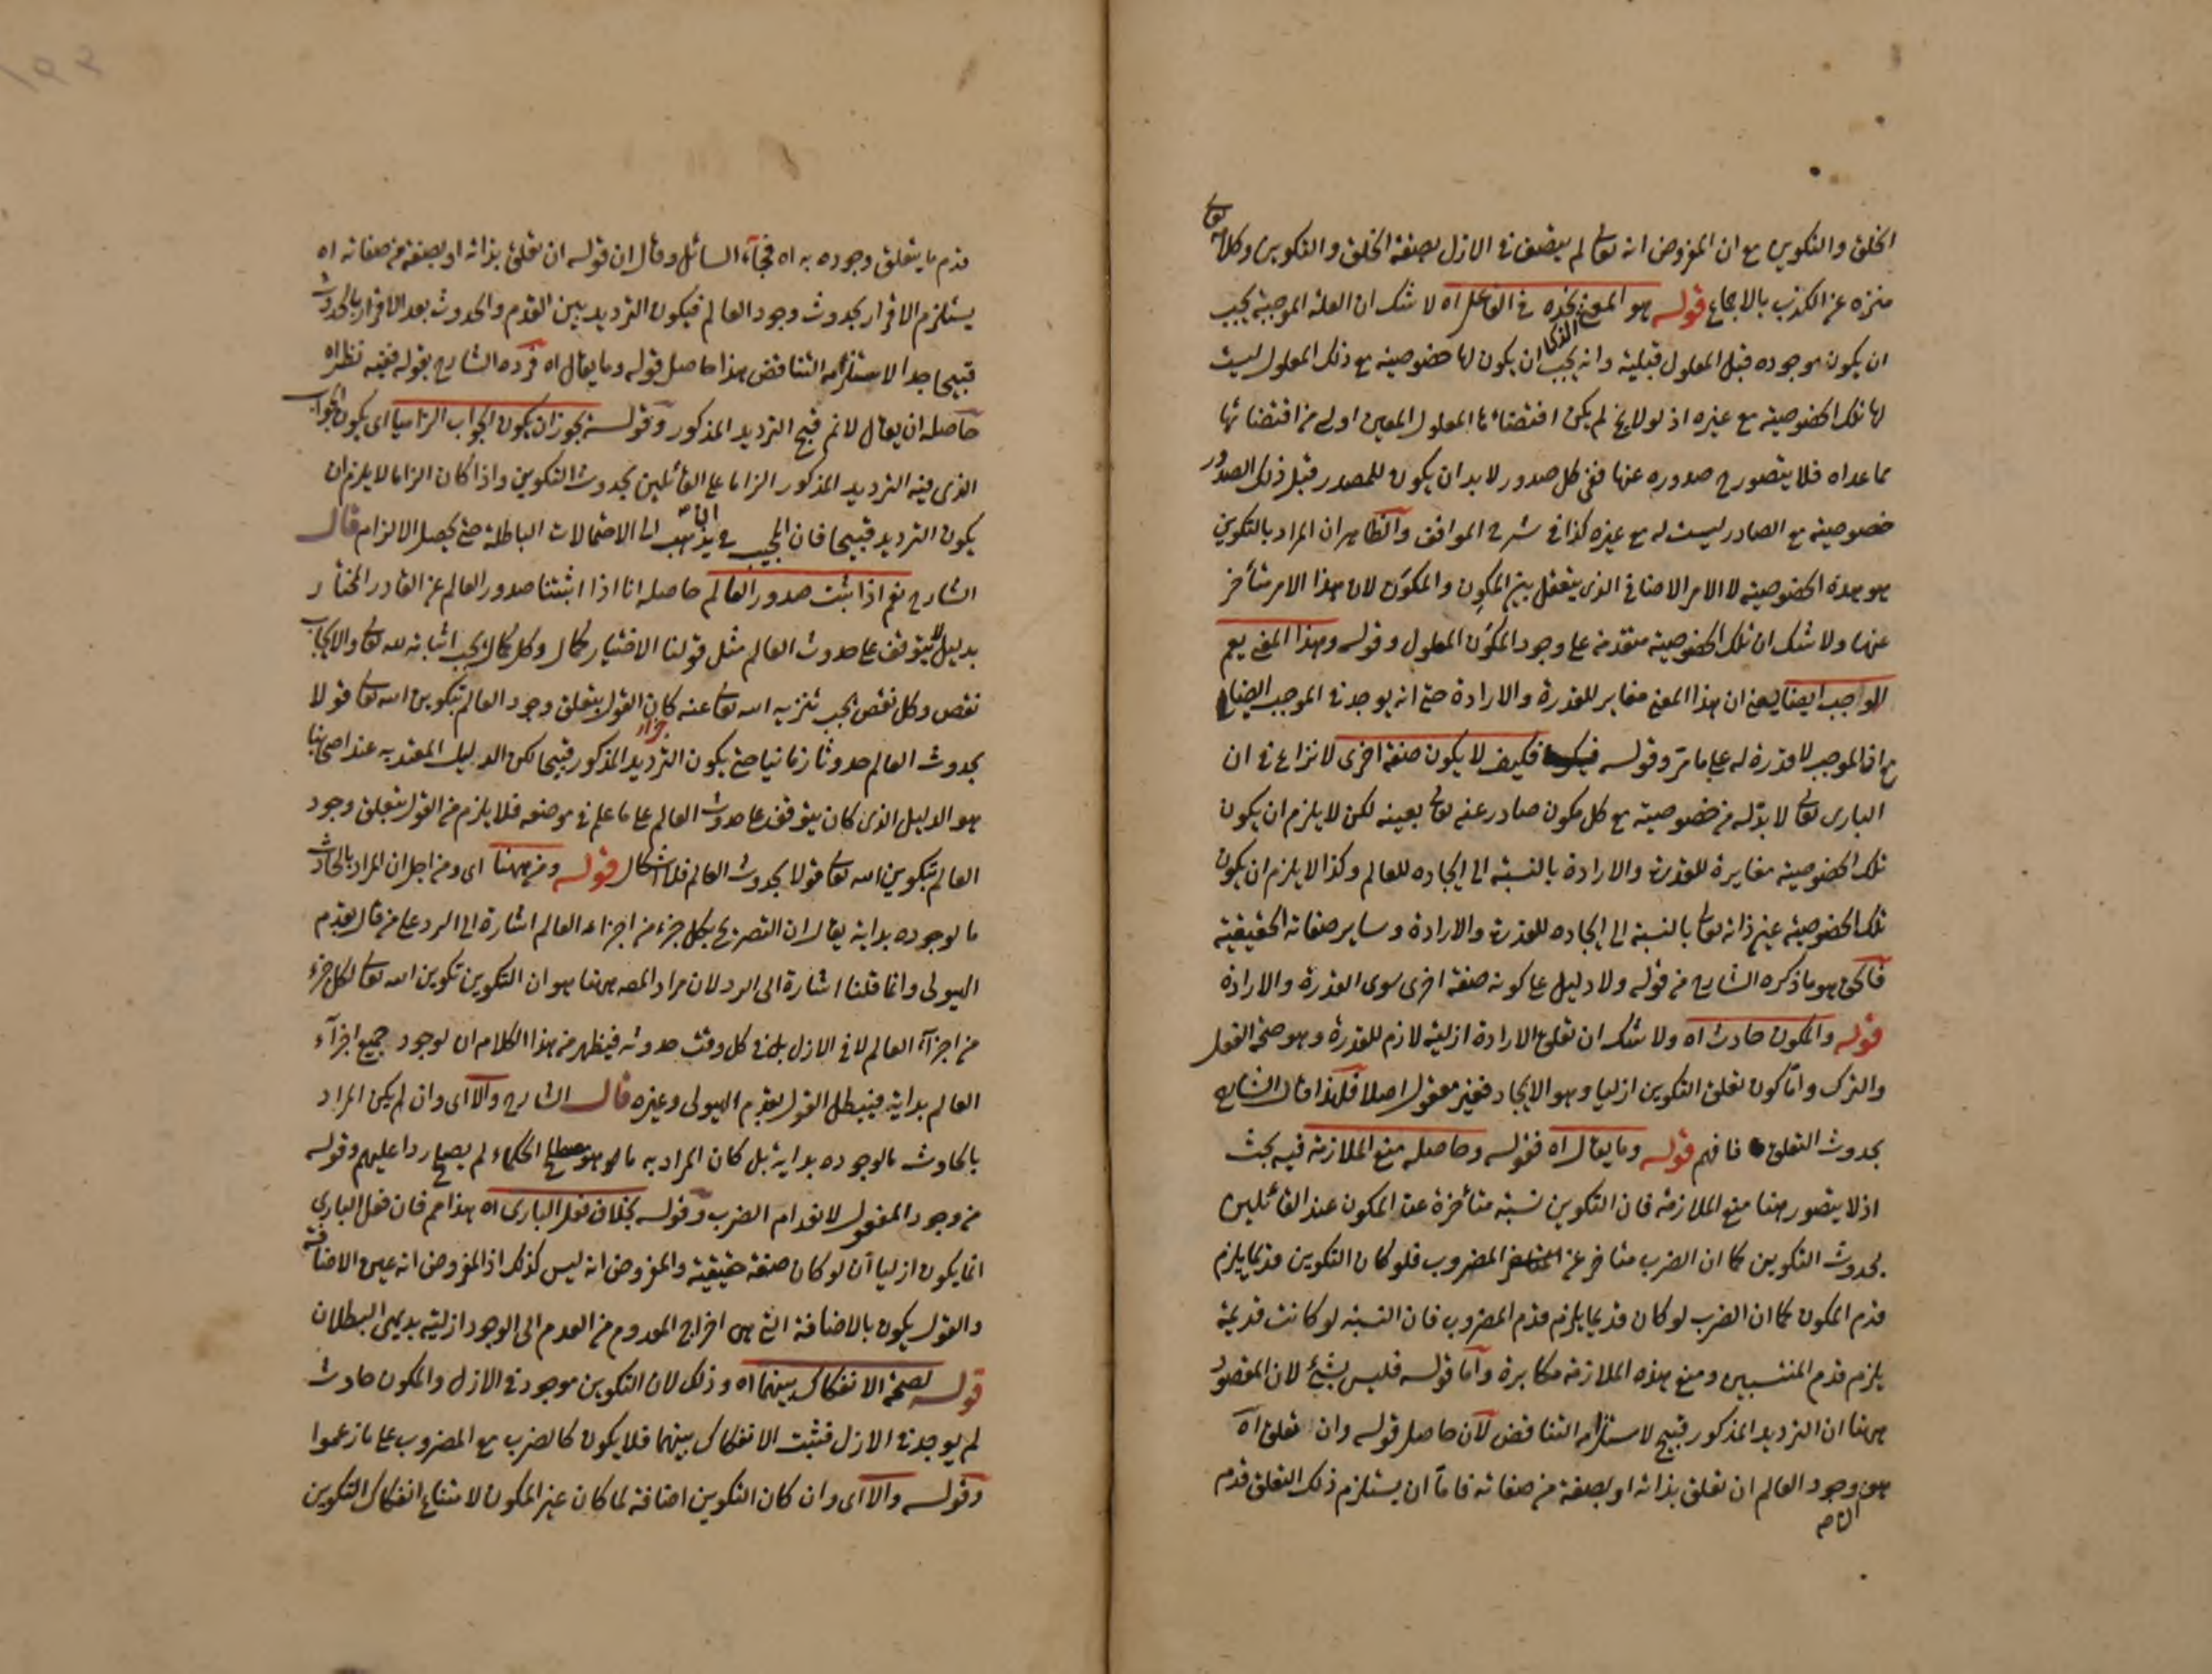 الخلق والتكوين مع ان المفروض انه تعالى لم يتصف فى الازل بصفة الخلق والتكوين وكلامه تعالى
منزه عن الكذب بالاجماع قوله هو المعنى نجده فى الفاعل اه لا شك ان العلة الموجبة يجب
ان يكون موجوده قبل المعلول قبلية وانه يجب ان يكون لها خصوصية مع ذلك المعلول ليست
لها تلك الخصوصية مع غيره اذ لولا لم يكن اقتضاءها المعلول المعين اولى من اقتضائها
ما عداه فلا يتصور ح صدوره عنها ففى كل صدور لا بد ان يكون للمصدر قبل ذلك الصدور
خصوصية مع الصادر ليست له مع غيره كذا فى شرح المواقف والظاهر ان المراد بالتكوين
هو هذه الخصوصية لا الامر الاضافى الذى يتعقل بين المكوِن والمكوَن لان هذا الامر متأخر
عنها ولا شك ان تلك الخصوصية متقدمة على وجود المكوَن المعلول وقوله وهذا المعنى يعم
الموجب ايضا يعنى ان هذا المعنى مغاير للقدرة والارادة حتى انه يوجد فى الموجب ايضا
مع ان الموجب لا قدرة له على ما مر وقوله فكيف لا يكون صفة اخرى لا نزاع فى ان
البارى تعالى لا بد له من خصوصية مع كل مكون صادر عنه تعالى بعينه لكن لا يلزم ان يكون
تلك الخصوصية مغايرة للقدرة والارادة بالنسبة الى ايجاده للعالم وكذا لا يلزم ان يكون
تلك الخصوصية عين ذاته تعالى بالنسبة الى ايجاده للقدرة والارادة وساير صفاته الحقيقية
فالحق هو ما ذكره الشارح من قوله ولا دليل على كونه صفة اخرى سوى القدرة والارادة
قوله والمكون حادث اه ولا شك ان تعلق الارادة ازلية لازم للقدرة وهو صحة الفعل
والترك واما كون تعلق التكوين ازليا وهو الايجاد فغير معقول اصلا فلهذا قال الشارح
بحدوث التعلق فافهم قوله وما يقال اه فقوله وحاصله منع الملازمة فيه بحث
اذ لا يتصور هنا منع الملازمة فان التكوين نسبة متأخرة عند المكون عند القائلين
بحدوث التكوين كما ان الضرب متاخر عن المضروب فلو كان التكوين قديما يلزم
قدم المكون كما ان الضرب لو كان قديما يلزم قدم المضروب فان النسبة لو كانت قديمة
يلزم قدم المنتسبين ومنع هذه الملازمة مكابرة واما قوله فليس بشئ لان المقصود
ههنا ان الترديد المذكور قبيح لاستلزامه التناقض لان حاصل قوله وان تعلق اه
هو وجود العالم ان تعلق بذاته او بصفة من صفاته فاما ان يستلزم ذلك التعلق قدم
قدم ما يتعلق وجوده به اه فجاء السائل وقال ان قوله ان تعلق بذاته او بصفة من صفاته اه
يستلزم الاقرار بحدوث وجود العالم فيكون الترديد بين القدم والحدوث بعد الاقرار بالحدوث
قبيحا جدا لاستلزامه التناقض هذا حاصل قوله وما يقال اه فرده الشارح بقوله ففيه نظر اه
حاصله ان يقال لا نم قبح الترديد المذكور وقوله يجوز ان يكون الجواب الزاميا اى يكون الجواب
الذى فيه الترديد المذكور الزاما على القائلين بحدوث التكوين واذا كان الزاما لا يلزم ان
يكون الترديد قبيحا فان المجيب يذهب الى الاحتمالات الباطلة حتى يحصل الالزام قال
الشارح نعم اذا ثبت صدور العالم حاصله انا اذا اثبتنا صدور العالم عن القادر المختار
بدليل لا يتوقف على حدوث العالم مثل قولنا الاختيار كمال وكل كمال يجب اثباته لله تعالى والايجاب
نقص وكل نقص يجب تنزيه الله تعالى عنه كان القول بتعلق وجود العالم بتكوين الله تعالى قولا
بحدوث العالم حدوثا زمانيا حتى يكون الترديد المذكور قبيحا لكن الدليل المعتد به عند اصحابنا
هو الدليل الذى كان يتوقف على حدوث العالم على ما علم فى موضعه فلا يلزم من القول بتعلق وجود
العالم بتكوين الله تعالى قولا بحدوث العالم فلا اشكال قوله ومن ههنا اى ومن اجل ان المراد بالحادث
ما لوجوده بداية يقال ان التصريح بكل جزء من اجزاء العالم اشارة الى الرد على من قال بقدم
الهيولى وانما قلنا اشارة الى الرد لان مراد المصه ههنا هو ان التكوين تكوين الله تعالى لكل جزء
من اجزاء العالم لا فى الازل بل فى كل وقت حدوثه فيظهر من هذا الكلام ان لوجود جميع اجزاء
العالم بداية فيبطل القول بقدم الهيولى وغيره قال الشارح والا اى وان لم يكن المراد
بالحادث ما لوجوده بداية بل كان المراد به ما هو مصطلح الحكماء لم يصلح ردا عليهم وقوله
من وجود المفعول لانعدام الضرب وقوله بخلاف فعل البارى اه هذا مم فان فعل البارى
انما يكون ازليا ان لو كان صفة حقيقية والمفروض انه ليس كذلك اذ المفروض انه عين الاضافة
والقول يكون بالاضافة التى هى اخراج المعدوم من العدم الى الوجود ازلية بديهى البطلان
قوله لصحة الانفكاك بينهما اه وذلك لان التكوين موجود فى الازل والمكون حادث
لم يوجد فى الازل فثبت الانفكاك بينهما فلا يكون كالضرب مع المضروب على ما زعموا
وقوله والا اى وان كان التكوين اضافة لما كان غير المكون لامتناع انفكاك التكوين